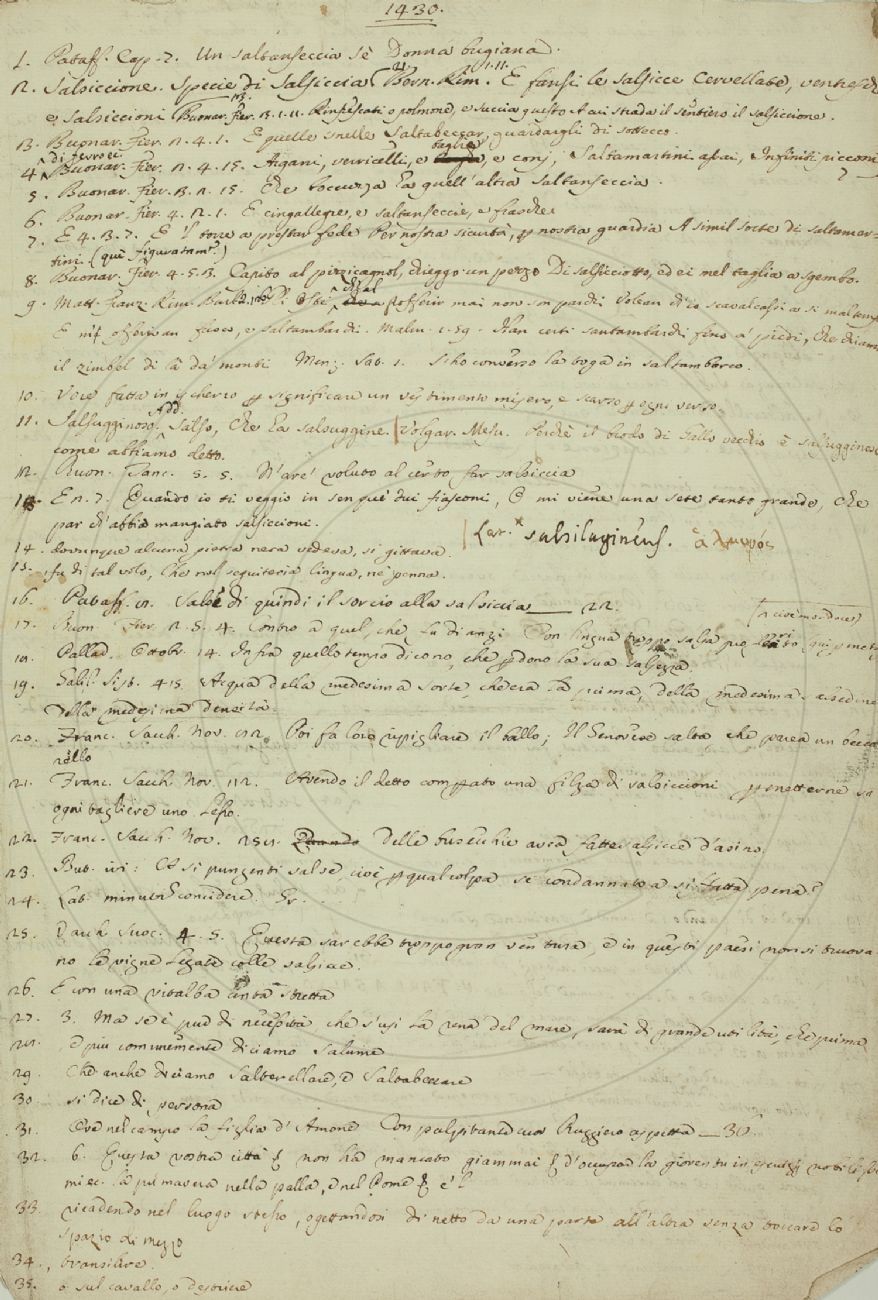 1430.
1. Pataff. Cap. 7. Un saltanseccia sè Donna bugiana.
2. Salsiccione. Specie di Salsiccia Bern. Rim. E fansi le salsicce Cervellate,
e salsiccioni Buonar. Fier. 3. 1. 11. Rinfrescati o polmone, e succia questo
3. Buonar. Fier. 2. 4. 1. E quelle snelle Saltabeccar, guardaigli di sottecco.
4. Buonar. Fier. 2. 4. 15. Aigani, verricelli, e taglie, e conj, Saltamartini assai, Infiniti picconi
5. Buonar. Fier. 3. 2. 15. Che boccuzza ha quell'altra Saltanseccia.
6. Buonar. Fier. 4. 2. 1. E cingallegre, e saltanseccie, e frasche
7. E 4. 3. 7. E il torre a prestar fede Per nostra sicurtà, p nostra guardia A simil sorte di saltamar=
tini. (quì figuratam.)
8. Buonar. Fier. 4. 5. 3. Capito al pizzicagnol, chieggo un pezzo Di salsicciotto, ed ei nel taglia a sgembo.
9. Matt. Franz. Rim. Burl. mai non son pardi
E saltambardi. Malm. 1. 59. Han certi santambardi fino a' piedi, che
il zimbel di là da' monti Menz. Sat. 1. S'ho converso la toga in saltambarco.
10. Voce fatta in ischerzo p significare un vestimento misero, e scarso p ogni verso.
11. Salsugginoso. Add. Salso, che ha salsuggine. Volgar. Mesu. Perchè il brodo di Gallo vecchio è salsugginoso
come abbiamo detto.
12. Buon. Tanc. 5. 5. N'are' voluto al certo far salsiccia
13. E 2. 7. Quando io ti veggio in sen que' dui fiasconi, O mi viene una sete tanto grande, che
par ch'abbia mangiato salsiccioni.
Lat. salsilagineus.
14. dovunque alcuna pietra nera vedeva, si gittava.
15. fu di tal volo, che nol seguiteria lingua, nè penna.
16. Pataff. 2. Salse di quindi il sorcio alla salsiccia — 22.
17. Buon. Fier. 2. 5. 4. Contro a quel, che fu dianzi Con lingua troppo salsa
18. Pallad. Ottobr. 14. Infra quello tempo dicono, che pdono la sua salsezza.
19. Sagg. 415. Acqua della medesima sorte, che era la prima, della medesima salsedine
della medesima densità.
20. Franc. Sacch. Nov. Poi fa loro ripigliare il ballo; Il Genovese salta, che parea un becca
rello
21. Franc. Sacch. Nov. 112. Avendo il detto compato una filza di salsiccioni p metterne su
ogni tagliere uno lesso.
22. Franc. Sacch. Nov. delle busecchie avea fatte salsicce d'asino.
23. But. ivi: A sì pungenti salse, cioè p qual colpa se' condannato a sì fatta pena?
24. Lat. minutim concidere. Gr. . . .
25. Dav. Scoc. 4. 5. Questa sarebbe troppo gran ventura, e in questi paesi non si truova=
no le vigne legate colle salsicce.
26. E con una vitalba stretta
27. 3. Ma se è pur di necessità, che s'usi la rena del mare, sarà di grande utilità, che prima
28. e più comunemente diciamo Salume
29. che anche diciamo Salterellare, e Saltabeccare
30. si dice di persona
31. Ove nel campo la figlia d'Amone Con palpitante cuor Ruggiero aspetta — 30.
32. 6. Questa vostra città non ha mancato giammai d'occupar la gioventù in esercizj nobili
la primavera nella palla, e nel Pome
33. ricadendo nel luogo stesso, o gettandosi di netto da una parte all'altra senza toccare lo
spazio di mezzo
34. , transilire.
35. o sul cavallo, o descrive